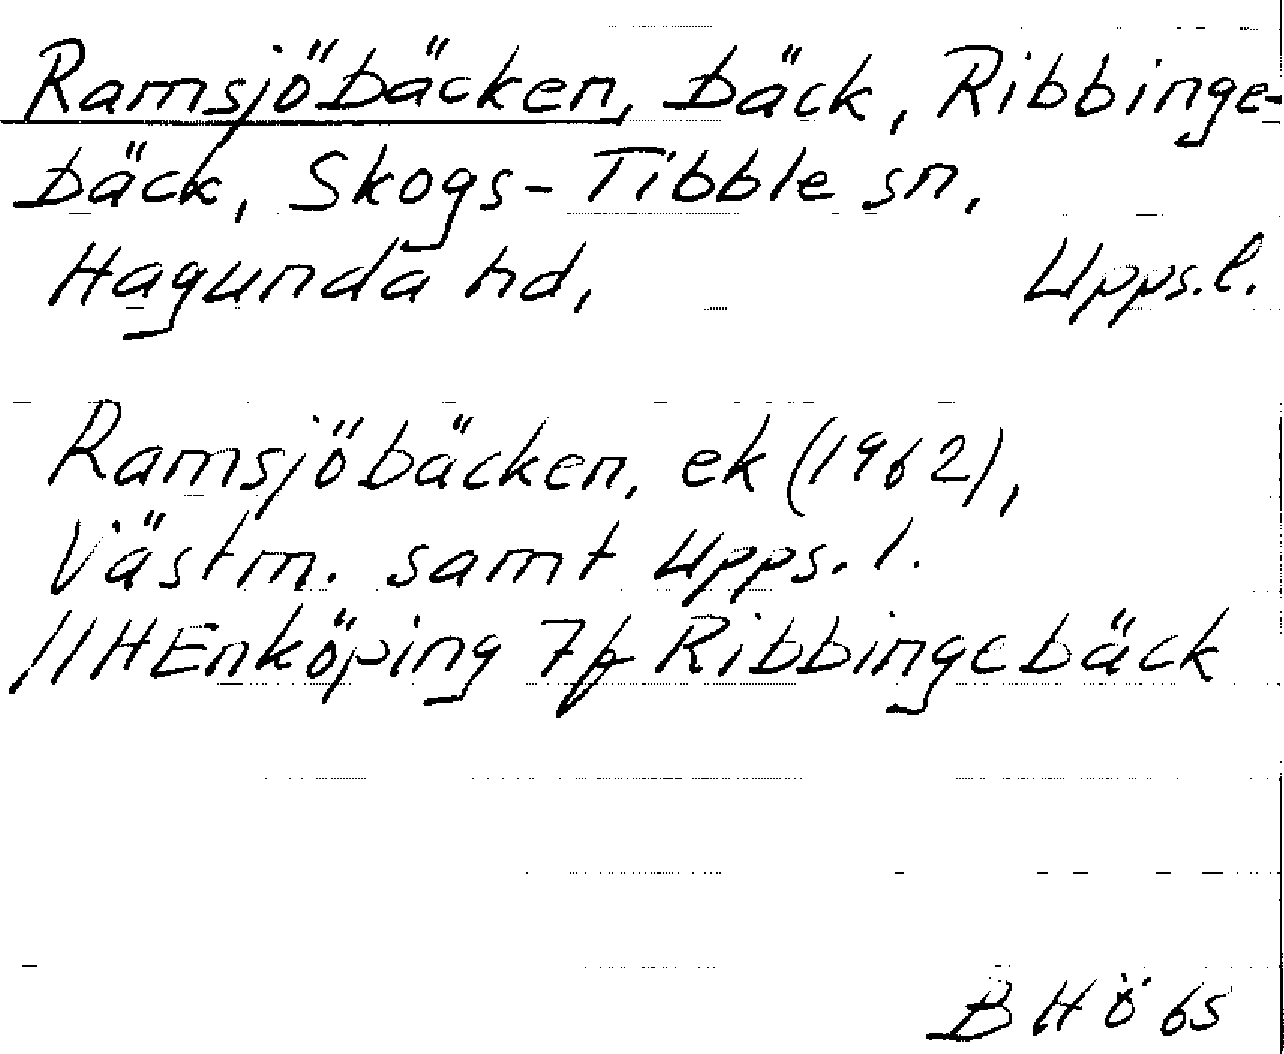 Ramsjöbäcken, bäck, Ribbinge-
bäck, Skogs-Tibble sn,
Hagunda hd, Upps.l.
Ramsjöbäcken, ek (1962),
Västm. samt Upps.l.
11HEnköping 7f Ribbingebäck
BHÖ 65